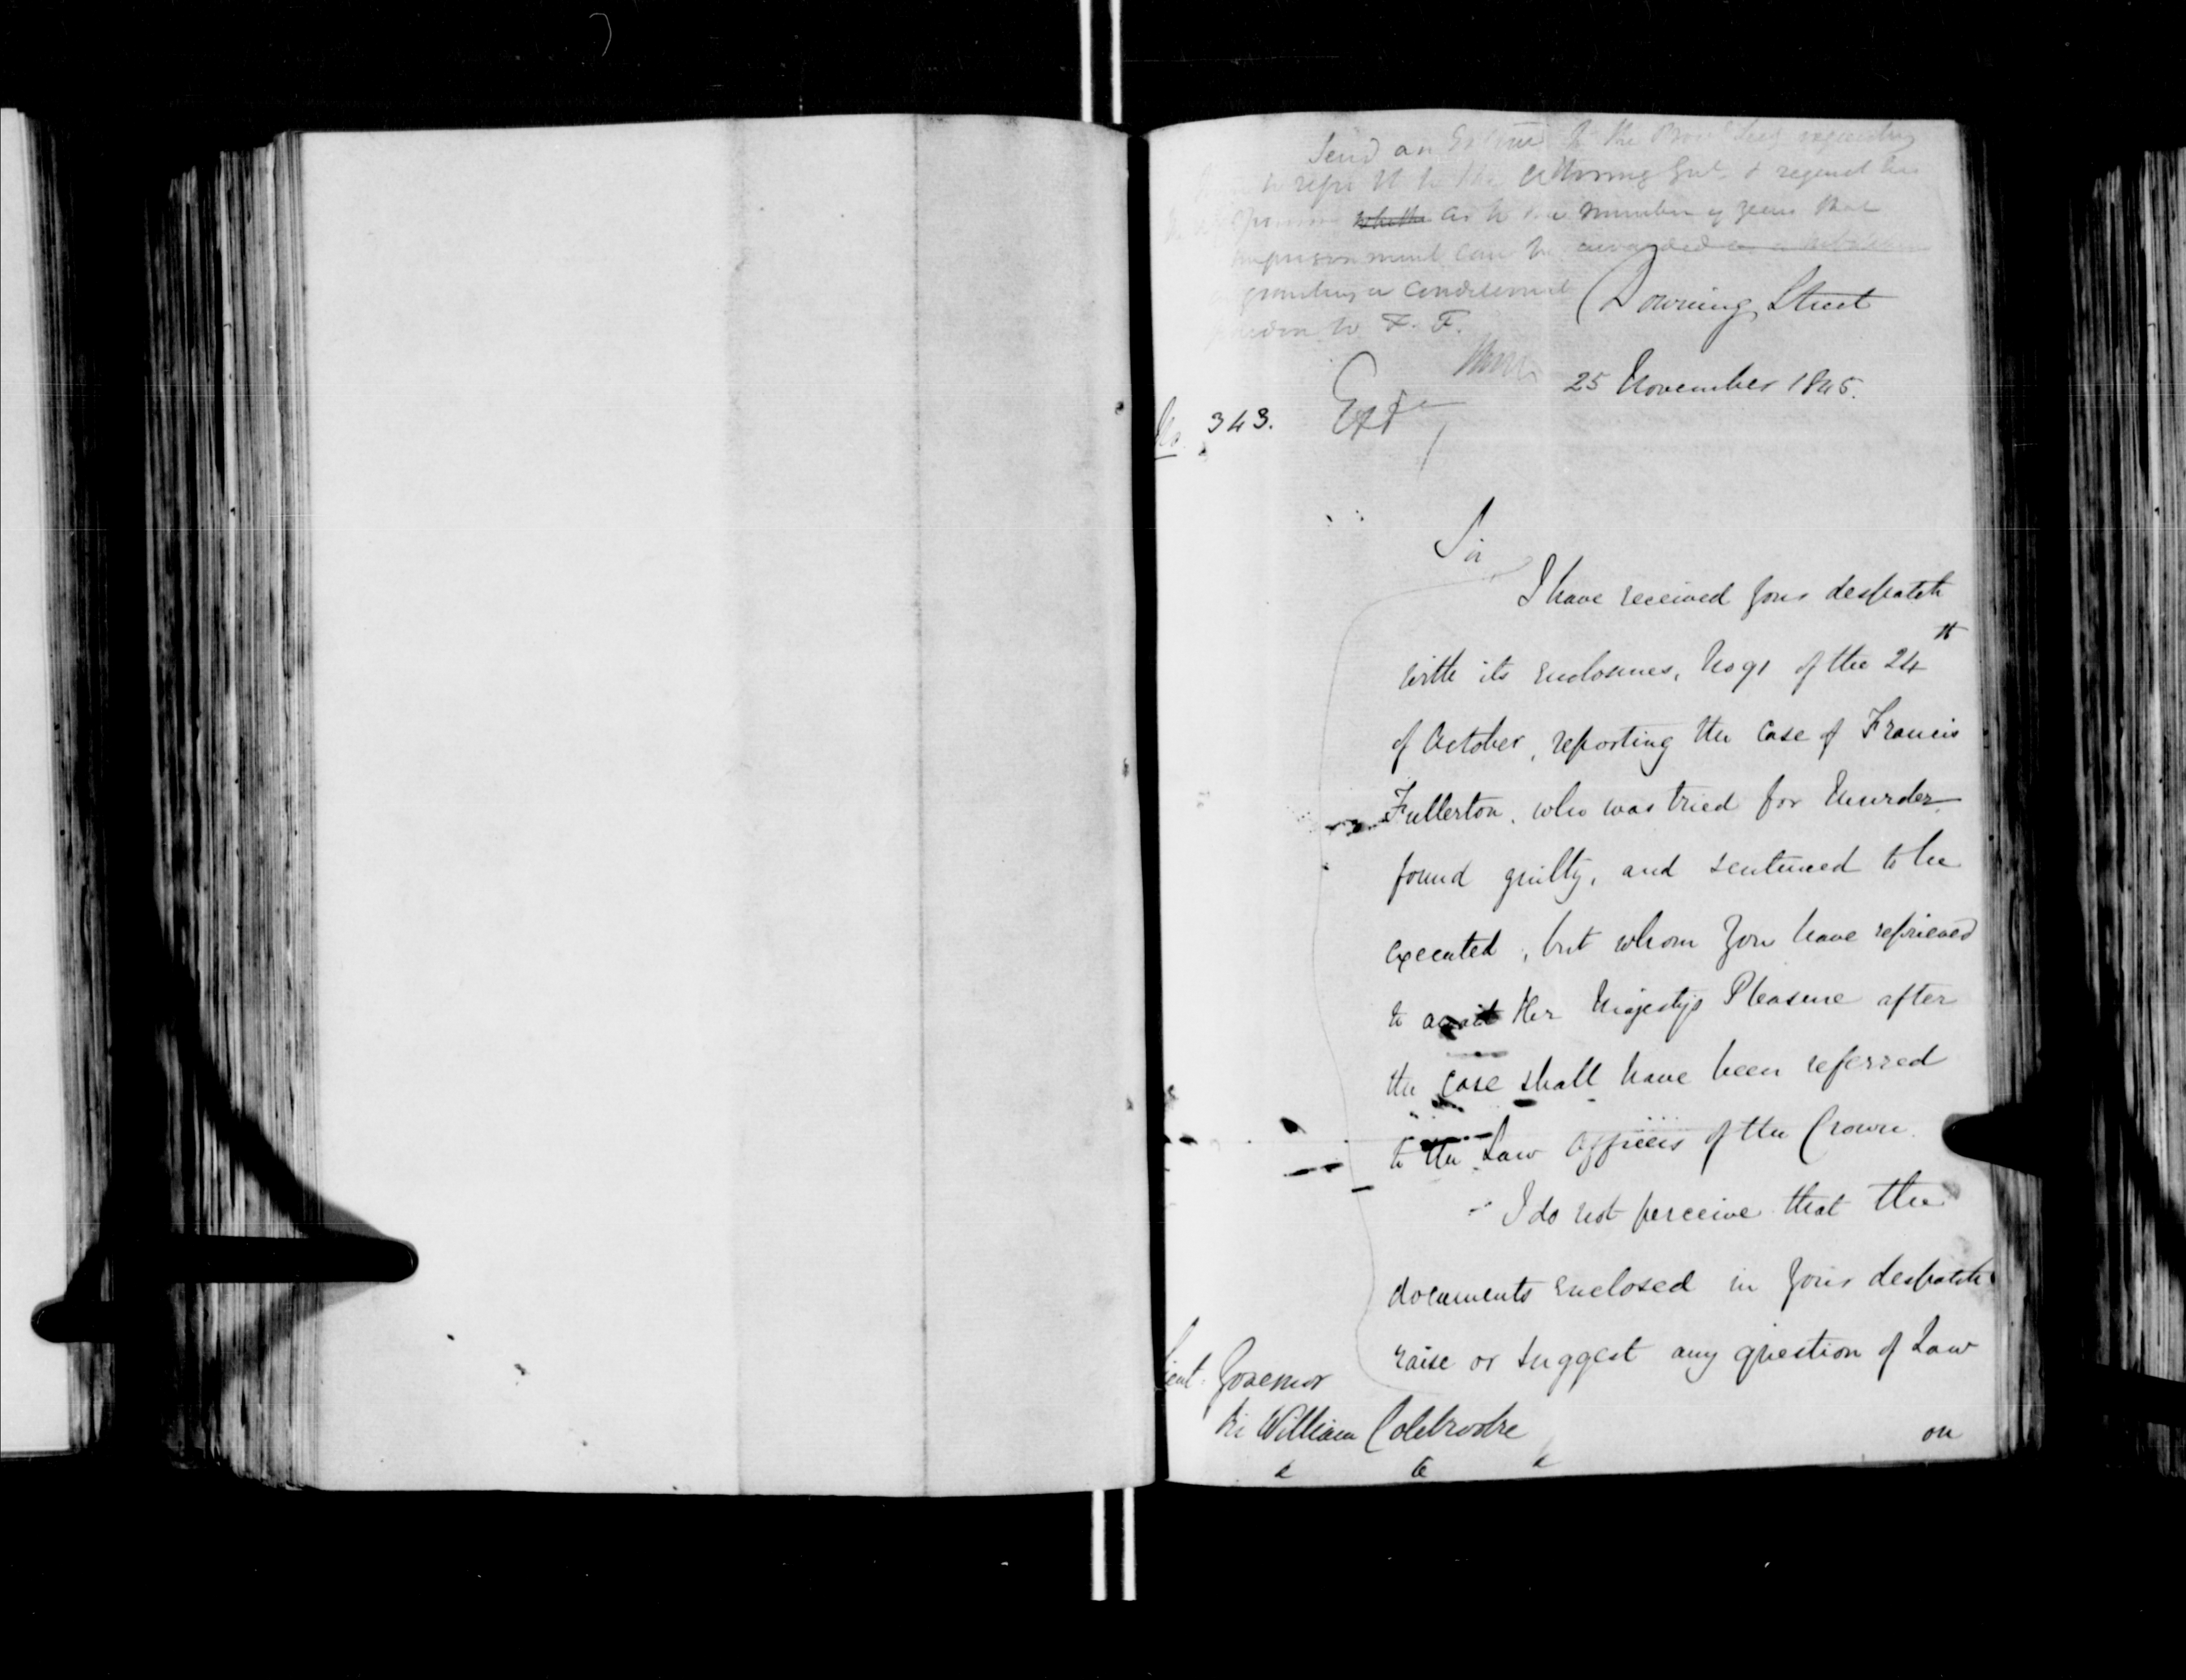 Send an Extract to the Prov Secy requesting
to refer it to the Attorney Genl & request his
opinion whether as to the number of years that
imprisonment can be awarded
granting a conditional
pardon to F. F.
Downing Street
25 November 1845.
No. 343.
Extd
Sir
I have received your despatch
with its enclosures, No 91 of the 24th
of October, reporting the case of Francis
Fullerton, who was tried for Murder
found guilty, and sentenced to be
executed, but whom you have reprieved
to await Her Majesty's Pleasure after
the case shall have been referred
to the Law Officers of the Crown.
I do not perceive that the
documents enclosed in your despatch
raise or suggest any question of Law
on
Lieut. Governor
Sir William Colebrooke
& & &